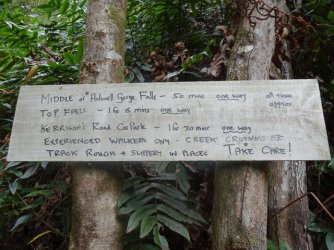 MIDDLE of Holwell Gorge Falls - 50 mins one way all times approx
TOP FALLS - 1 hr 15 mins one way
KERRISONS Road CarPark - 1 hr 30 mins one way
EXPERIENCED WALKERS ONLY - CREEK CROSSINGS
TRACK ROUGH & SLIPPERY IN PLACES TAKE CARE!